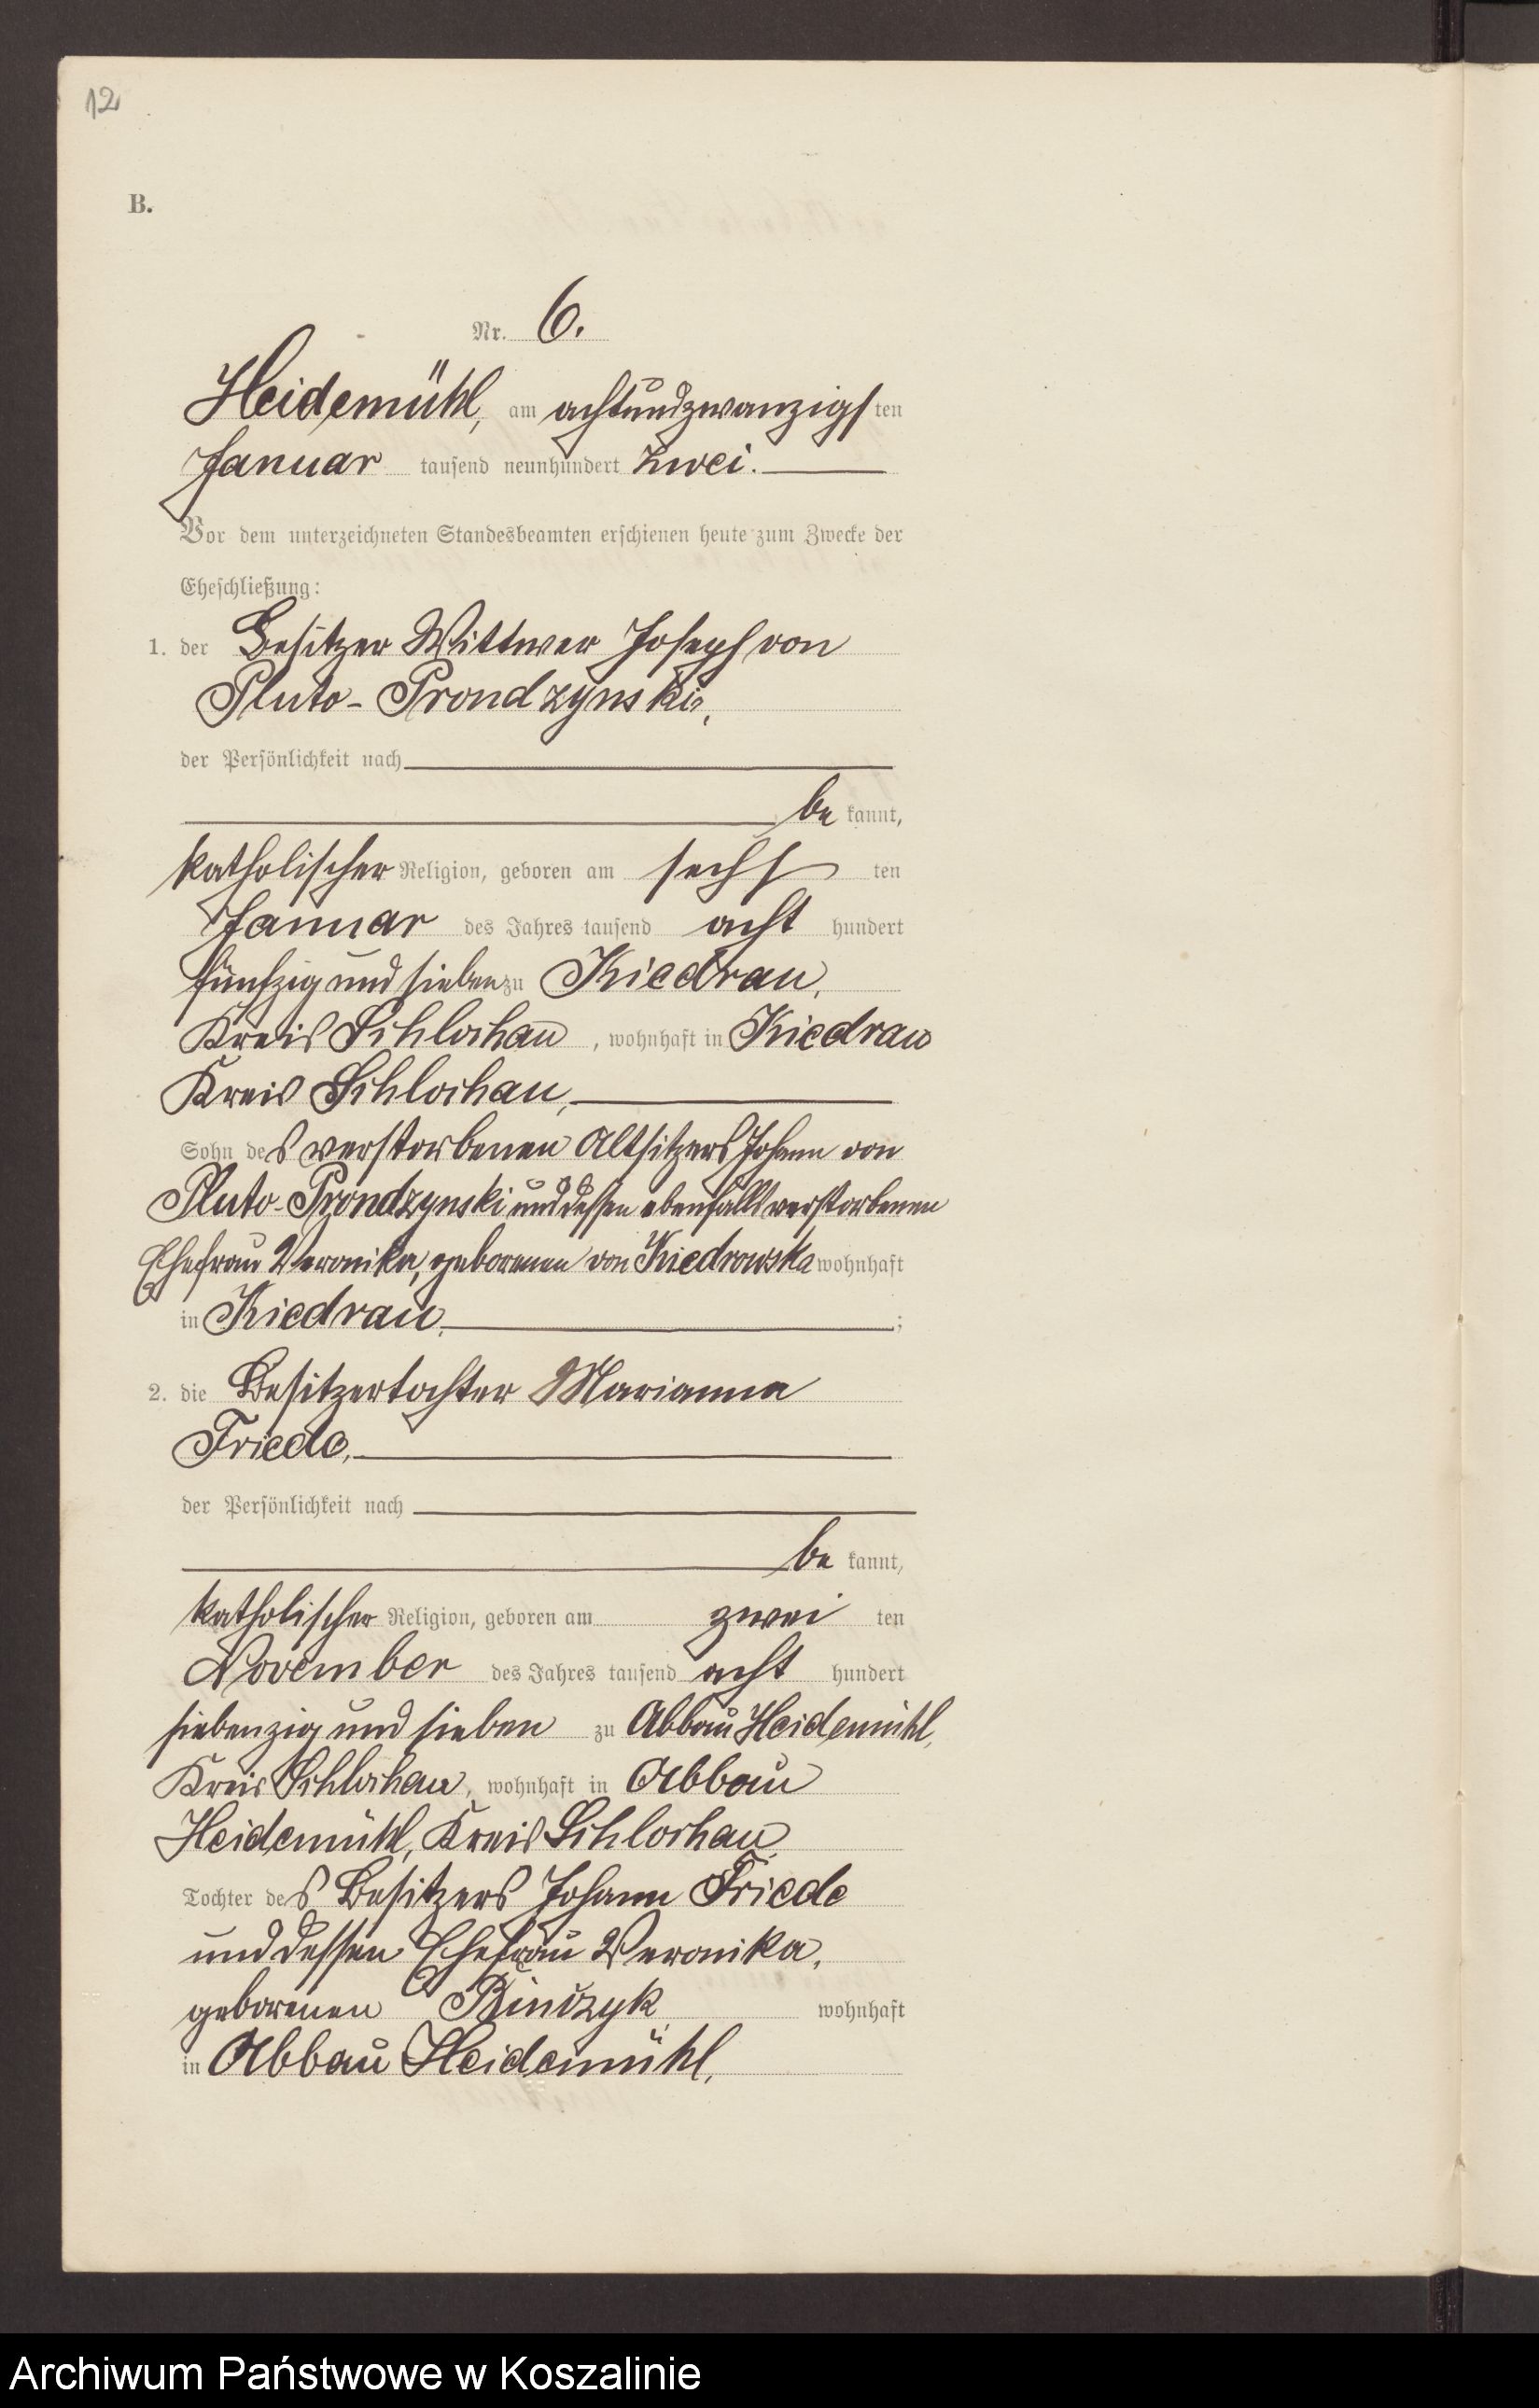 12
B.
Nr. 6.
Heidemühl, am achtundzwanzigsten
Januar tausend neunhundert zwei.
Vor dem unterzeichneten Standesbeamten erschienen heute zum Zwecke der
Eheschließung:
1. der Besitzer Wittwer Joseph von
Pluto-Prondzynski,
der Persönlichkeit nach
be kannt,
katholischer Religion, geboren am sechs ten
Januar des Jahres tausend acht hundert
fünfzig und sieben zu Kiedrau,
Kreis Schlochau, wohnhaft in Kiedrau
Kreis Schlochau,
Sohn des verstorbenen Altsitzers Johann von
Pluto-Prondzynski und dessen ebenfalls verstorbenen
Ehefrau Veronika, geborenen von Kiedrowska wohnhaft
in Kiedrau. ;
2. die Besitzertochter Marianna
Friede,
der Persönlichkeit nach
be kannt,
katholischer Religion, geboren am zwei ten
November des Jahres tausend acht hundert
siebenzig und sieben zu Abbau Heidemühl,
Kreis Schlochau, wohnhaft in Abbau
Heidemühl, Kreis Schlochau
Tochter des Besitzers Johann Friede
und dessen Ehefrau Veronika,
geborenen Binczyk, wohnhaft
in Abbau Heidemühl.
Archiwum Państwowe w Koszalinie